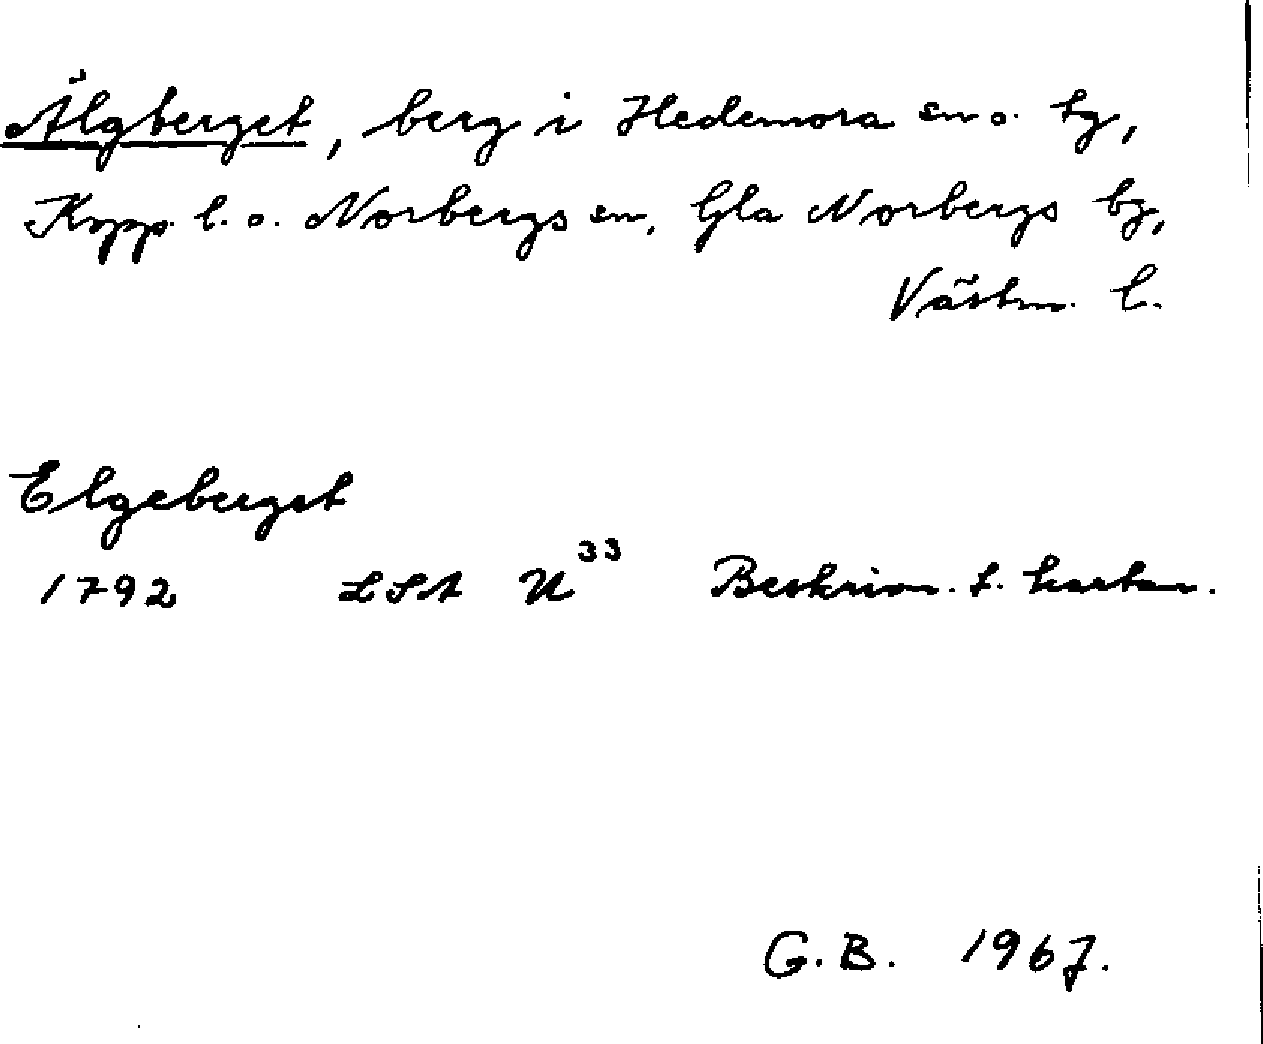 Älgberget, berg i Hedemora sn o. tg,
Kopp. l. o. Norbergs sn, Gla Norbergs bg,
Västm. l.
Elgeberget
1792 LSA U³³ Beskrivn. t. kartan.
G.B. 1967.